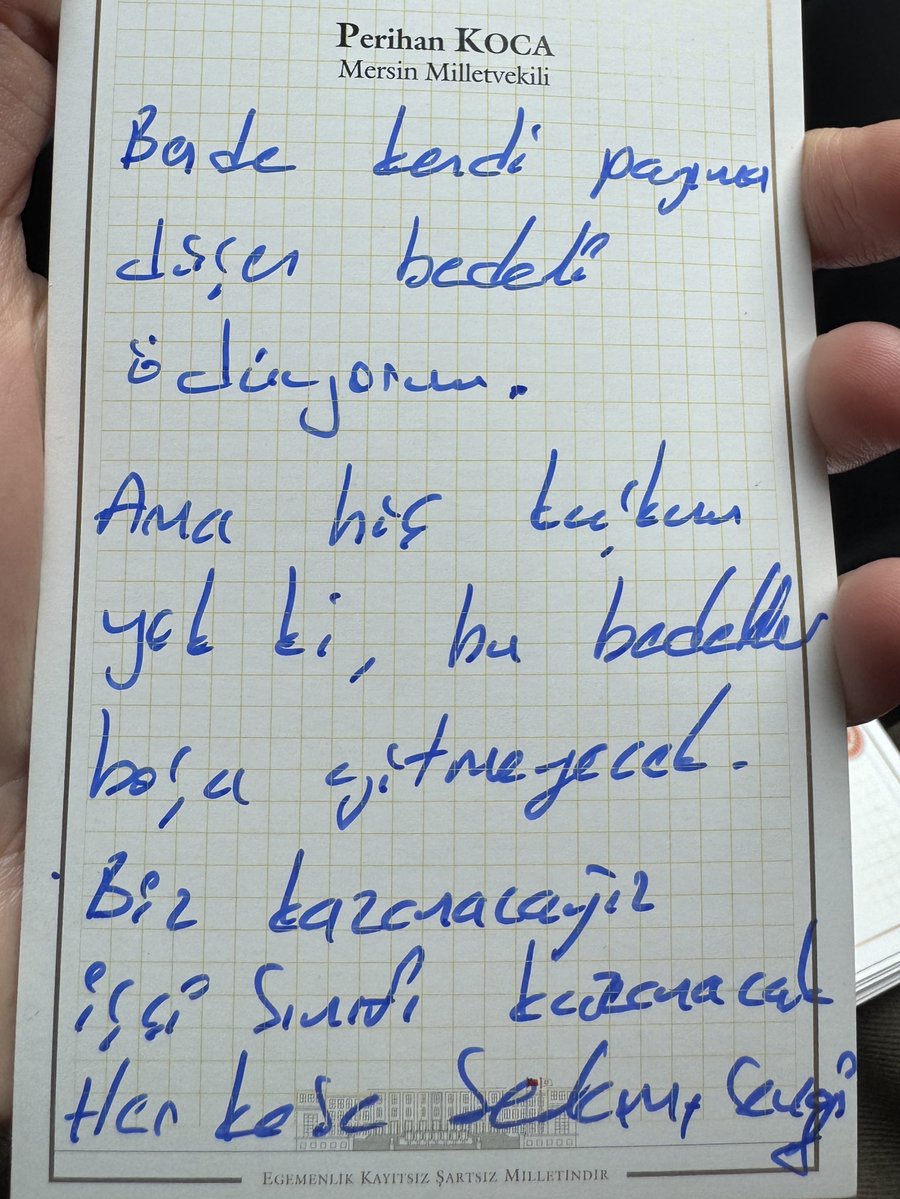 Perihan KOCA
Mersin Milletvekili
Bende kendi payıma
düşen bedeli
ödüyorum.
Ama hiç kuşkum
yok ki, bu bedeller
boşa gitmeyecek.
Biz kazanacağız
işçi sınıfı kazanacak
Herkese Selam, Sevgi
EGEMENLİK KAYITSIZ ŞARTSIZ MİLLETİNDİR